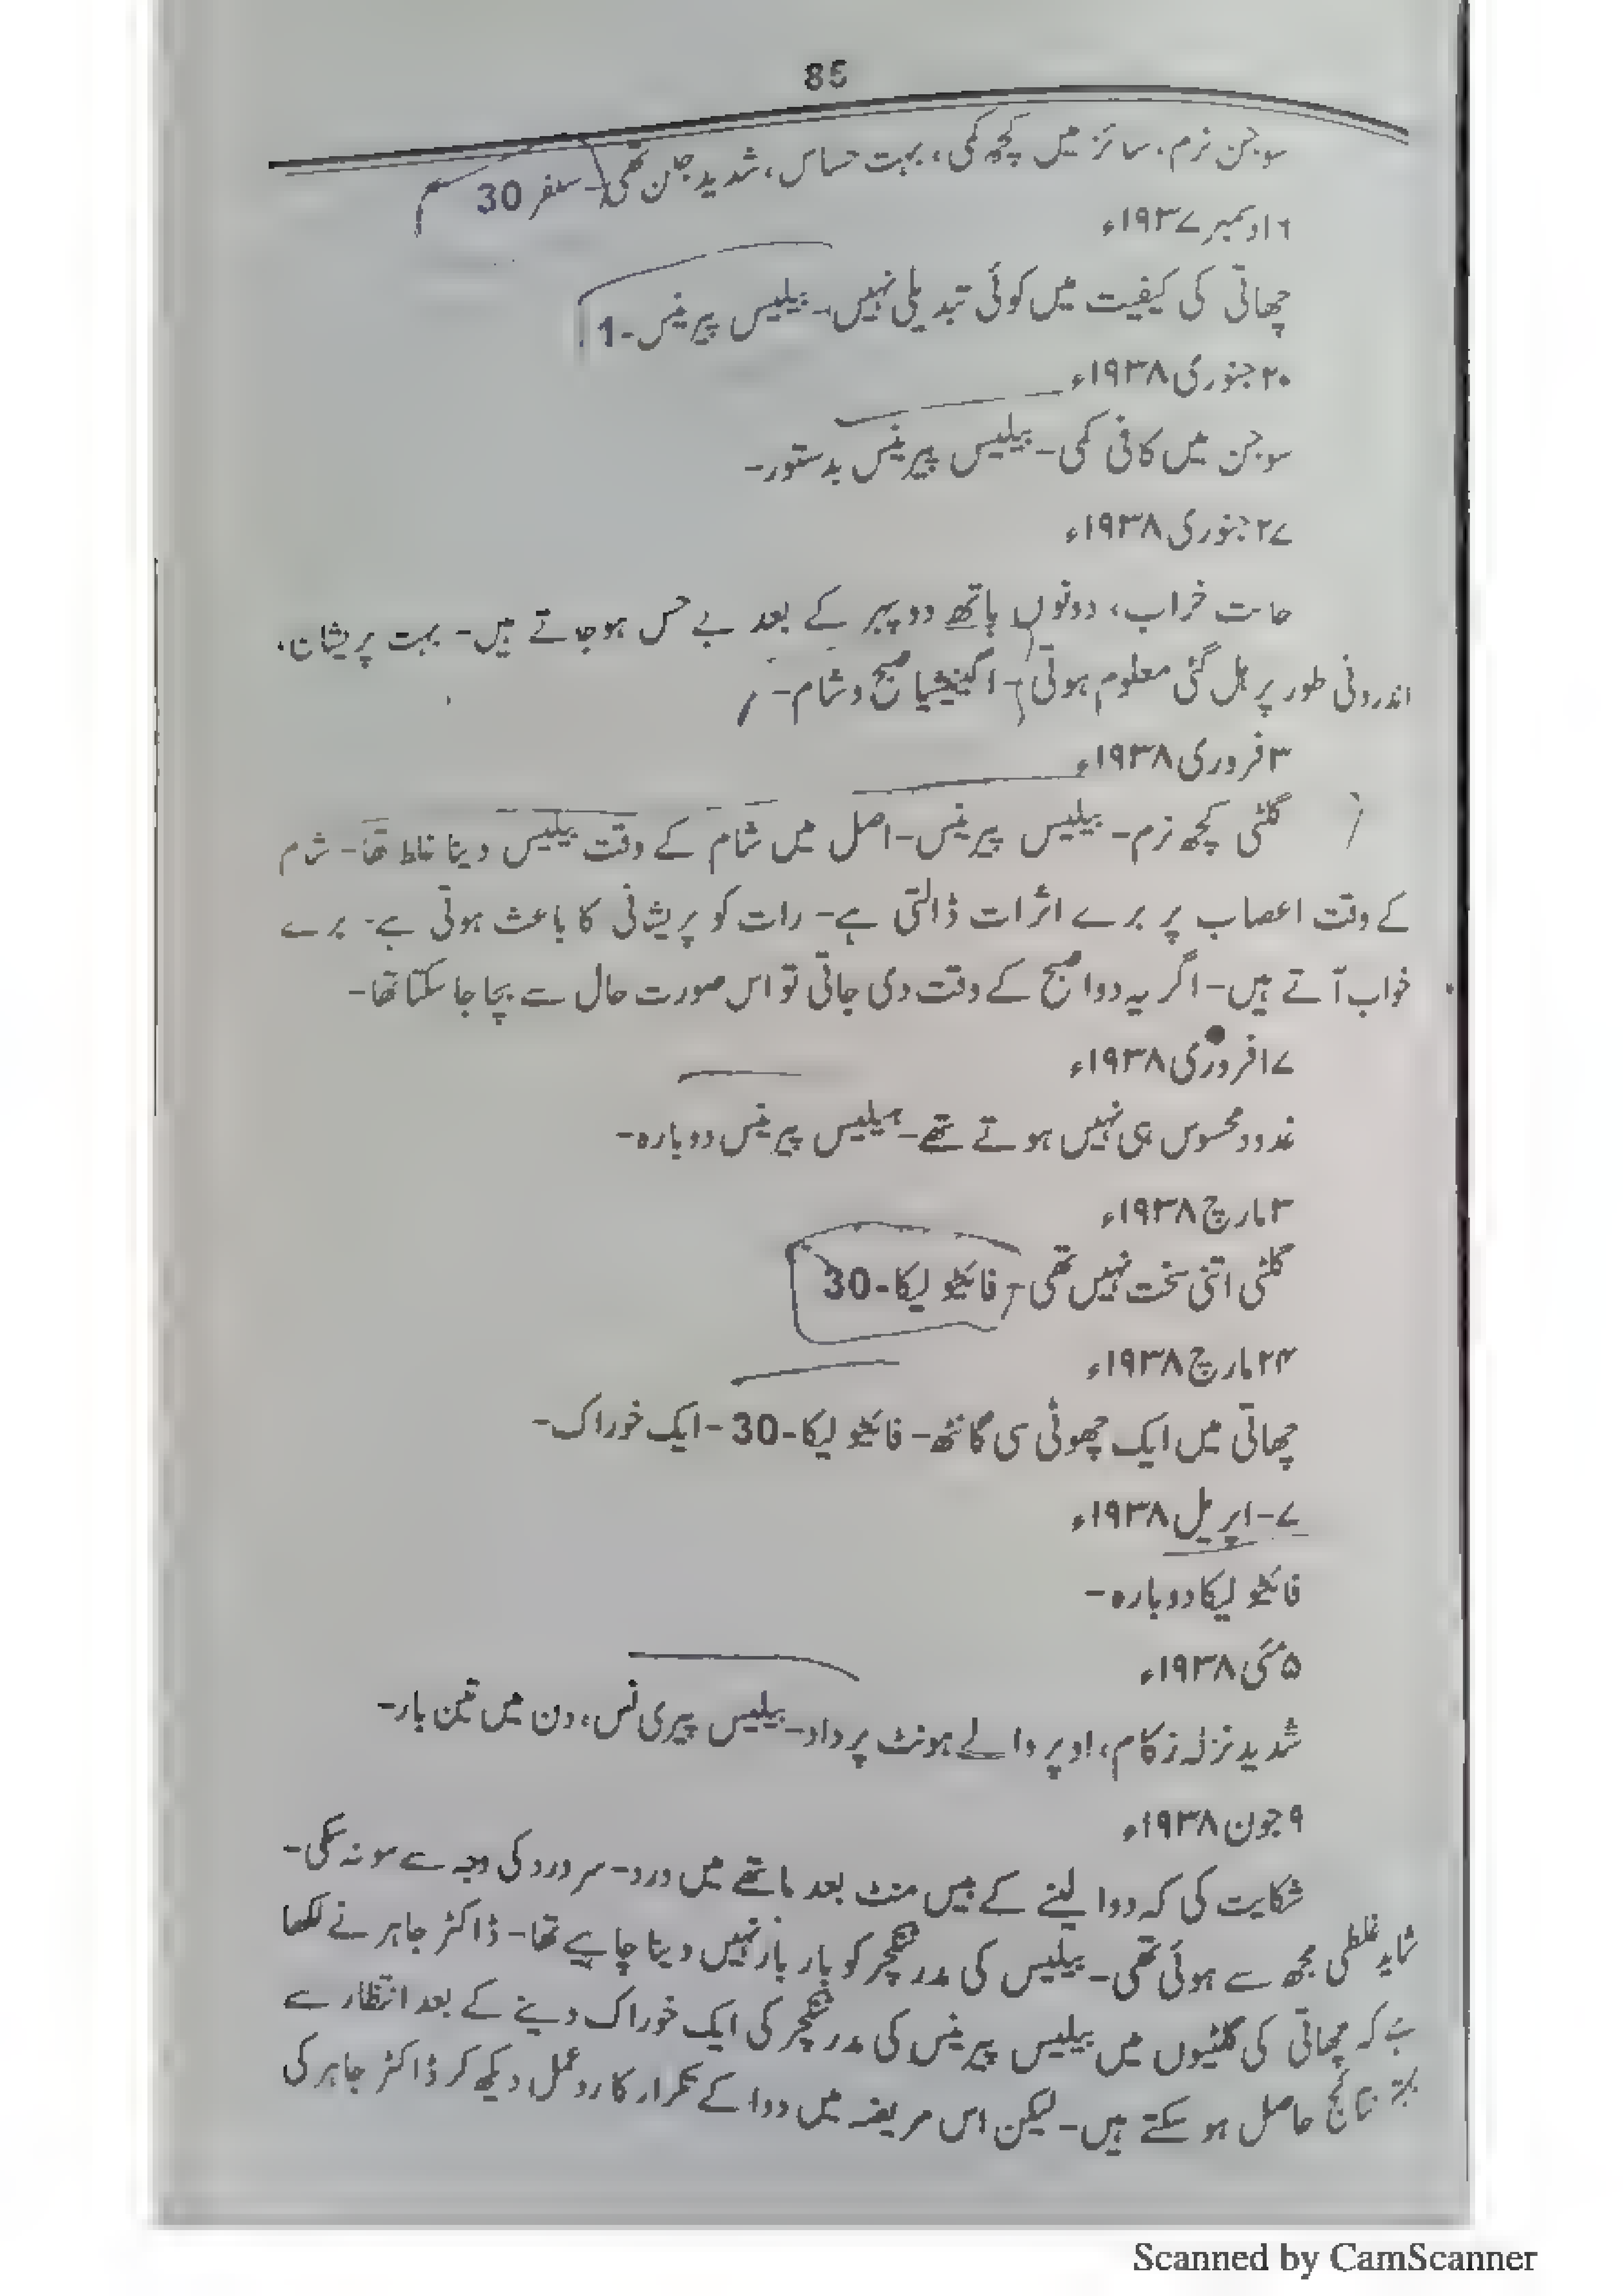 85
سوجن نرم، سائز میں کچھ کمی، بہت حساس، شدید جلن تھی۔ سلفر 30
۱۶ دسمبر ۱۹۳۷ء
چھاتی کی کیفیت میں کوئی تبدیلی نہیں۔ بیلیس پیرینس-1
۲۰ جنوری ۱۹۳۸ء
سوجن میں کافی کمی۔ بیلیس پیرینس بدستور۔
۲۷ جنوری ۱۹۳۸ء
حالت خراب، دونوں ہاتھ دوپہر کے بعد بے حس ہوجاتے ہیں۔ بہت پریشان،
اندرونی طور پر ہل گئی معلوم ہوتی۔ اگنیشیا صبح و شام۔
۳ فروری ۱۹۳۸ء
گلٹی کچھ نرم۔ بیلیس پیرینس۔ اصل میں شام کے وقت بیلیس دینا غلط تھا۔ شام
کے وقت اعصاب پر برے اثرات ڈالتی ہے۔ رات کو پریشانی کا باعث ہوتی ہے۔ برے
خواب آتے ہیں۔ اگر یہ دوا صبح کے وقت دی جاتی تو اس صورت حال سے بچا جا سکتا تھا۔
۱۷ فروری ۱۹۳۸ء
غدود محسوس ہی نہیں ہوتے تھے۔ بیلیس پیرینس دوبارہ۔
۳ مارچ ۱۹۳۸ء
گلٹی اتنی سخت نہیں تھی۔ فائیٹو لیکا-30
۲۴ مارچ ۱۹۳۸ء
چھاتی میں ایک چھوٹی سی گانٹھ۔ فائیٹو لیکا-30 - ایک خوراک۔
۷- اپریل ۱۹۳۸ء
فائیٹو لیکا دوبارہ۔
۵ مئی ۱۹۳۸ء
شدید نزلہ زکام، اوپر والے ہونٹ پر داد۔ بیلیس پیری نس، دن میں تین بار۔
۹ جون ۱۹۳۸ء
شکایت کی کہ دوا لینے کے بیس منٹ بعد ماتھے میں درد۔ سر درد کی وجہ سے سو نہ سکی۔
شاید غلطی مجھ سے ہوئی تھی۔ بیلیس کی مدر ٹنکچر کو بار بار نہیں دینا چاہیے تھا۔ ڈاکٹر جاہر نے لکھا
ہے کہ چھاتی کی گلٹیوں میں بیلیس پیرینس کی مدر ٹنکچر کی ایک خوراک دینے کے بعد انتظار سے
بہتر نتائج حاصل ہو سکتے ہیں۔ لیکن اس مریضہ میں دوا کے تکرار کا ردعمل دیکھ کر ڈاکٹر جاہر کی
Scanned by CamScanner